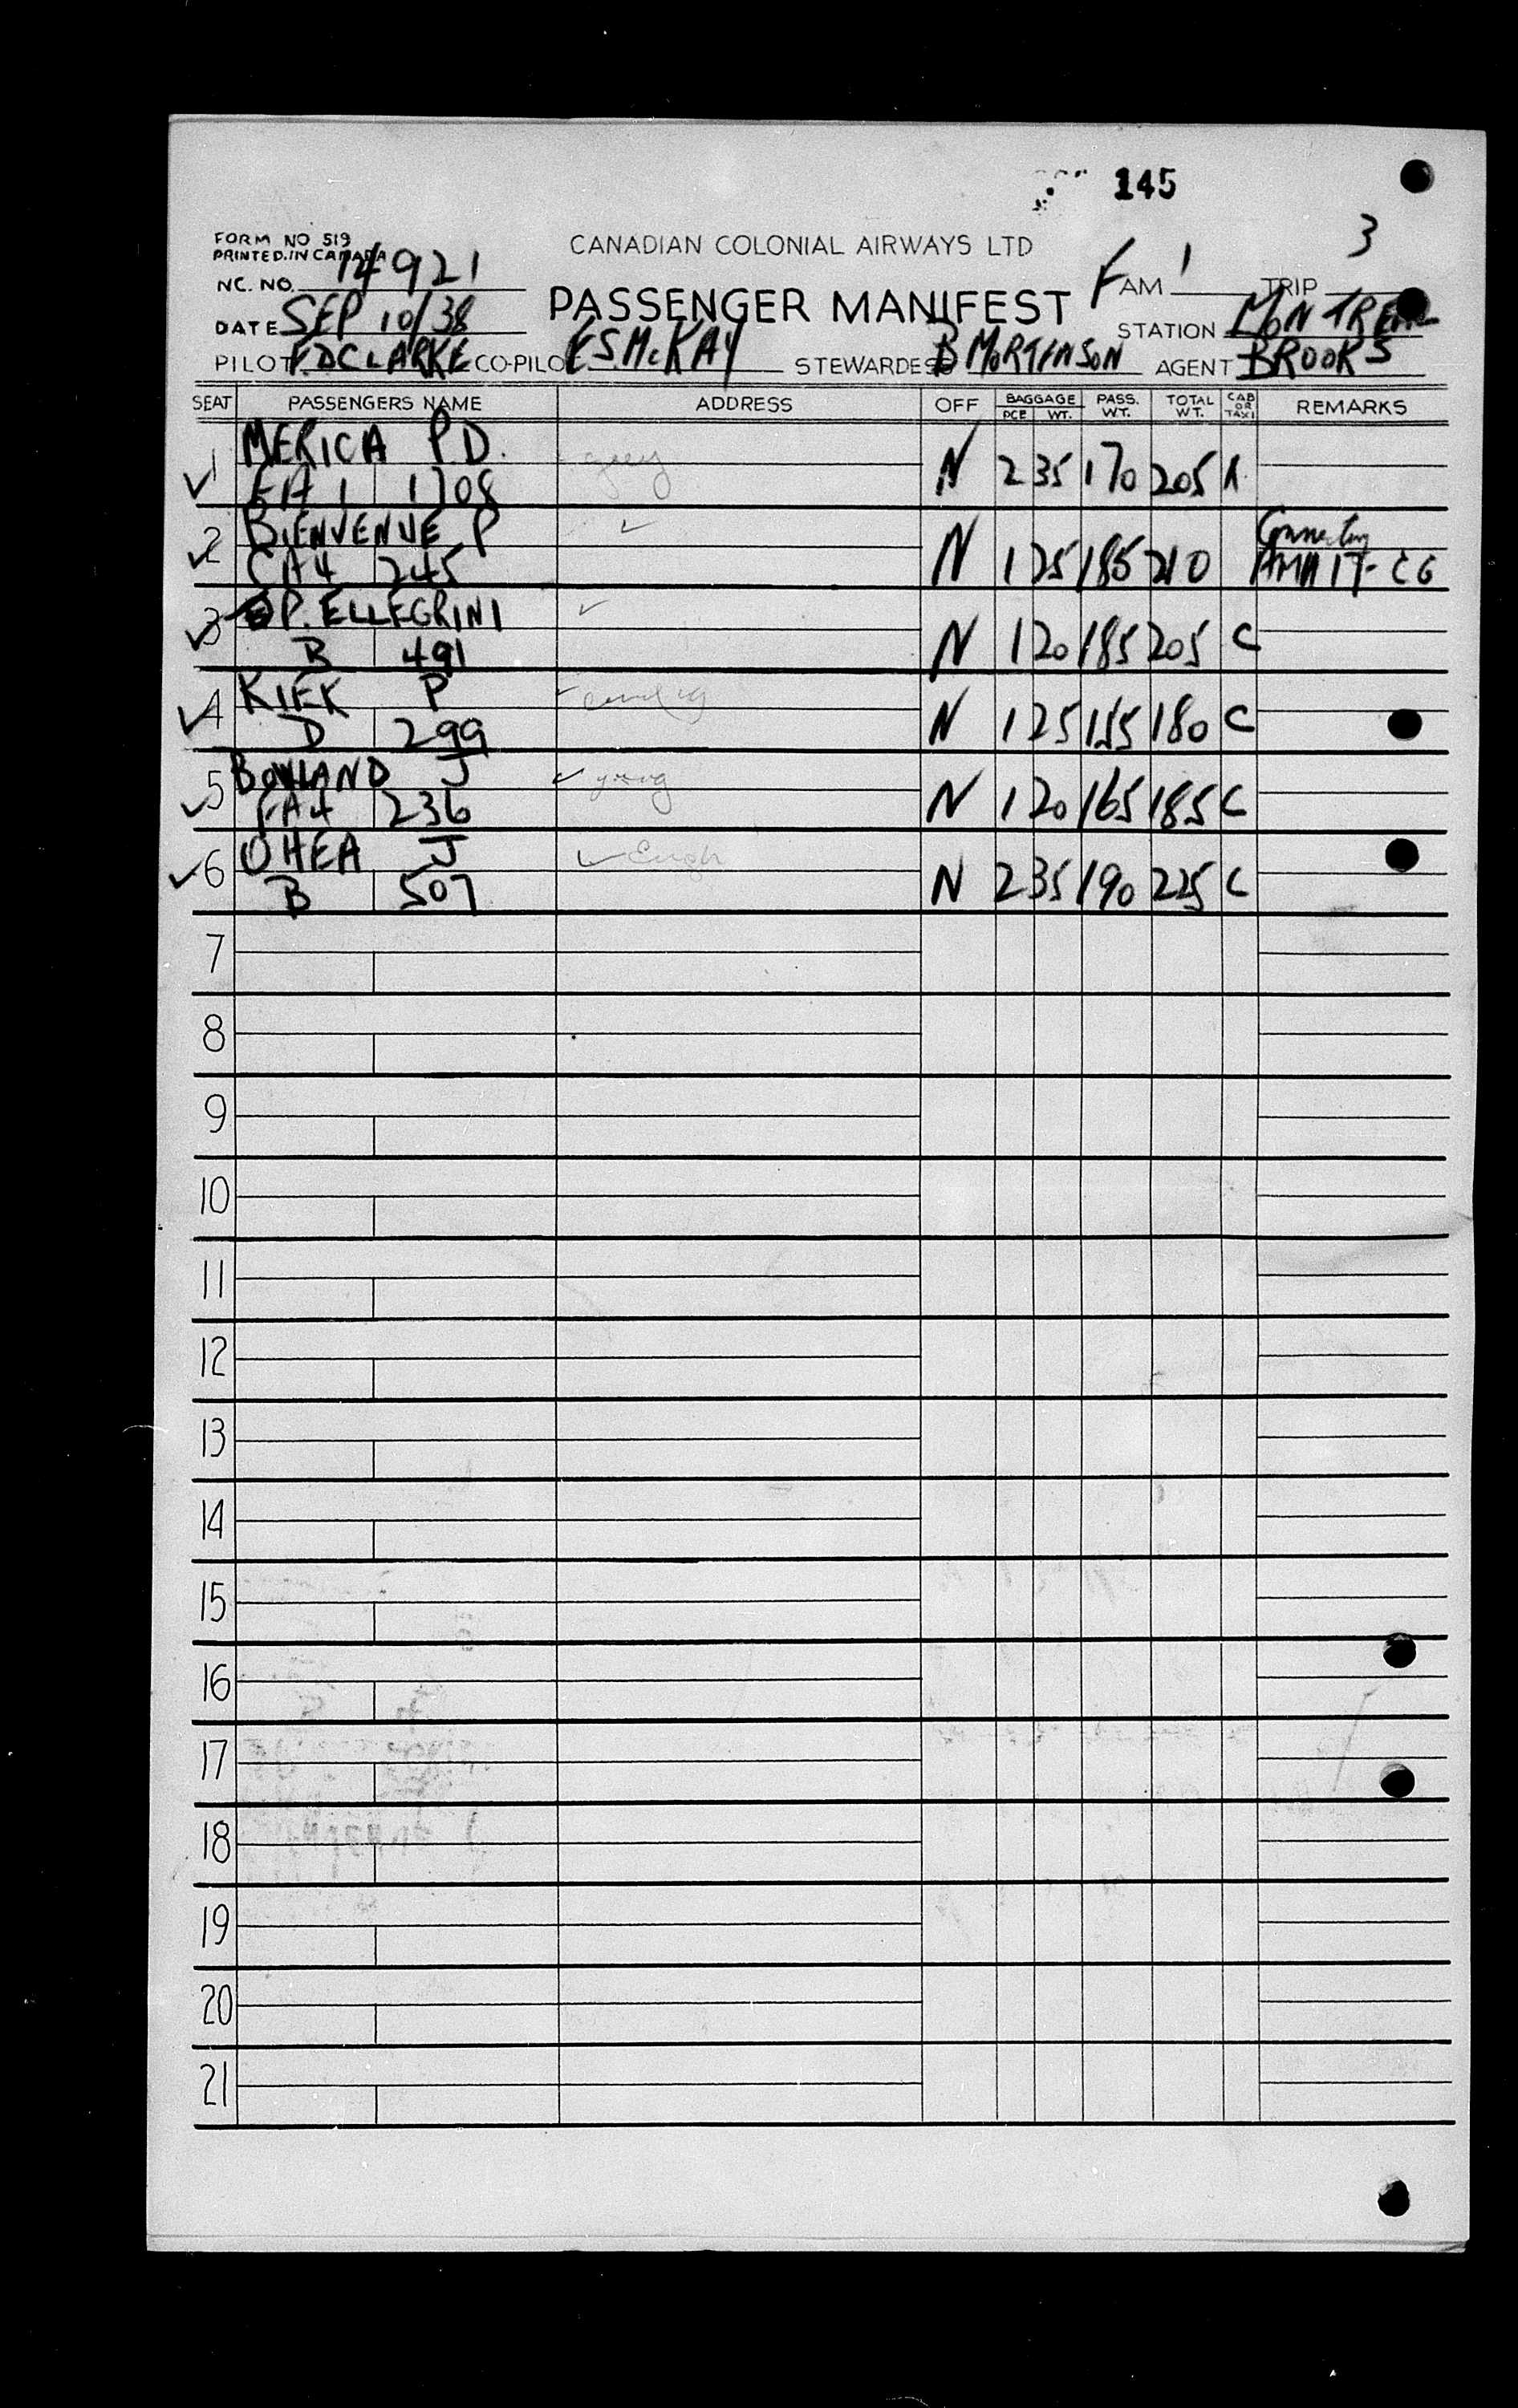 145
FORM NO 519
PRINTED.IN CANADA
CANADIAN COLONIAL AIRWAYS LTD
NC. NO. 14921
PASSENGER MANIFEST
FAM 1 TRIP 3
DATE SEP 10/38
STATION MONTREAL
PILOT F.D CLARKE CO-PILOT ES McKAY STEWARDESS B MORTENSON AGENT BROOKS
SEAT PASSENGERS NAME ADDRESS OFF BAGGAGE PCE WT. PASS. WT. TOTAL WT. CAB OR TAXI REMARKS
1 MERICA P.D. N 2 35 170 205
1708
2 BIENVENUE P N 1 25 185 210 Connecting
CA4 245
3 P. ELLEGRINI N 1 20 185 205 C
B 491
4 KIEK P N 1 25 155 180 C
D 299
5 BOWLAND J N 1 20 165 185 C
236
6 OHEA J N 2 35 190 225 C
B 507
7
8
9
10
11
12
13
14
15
16
17
18
19
20
21